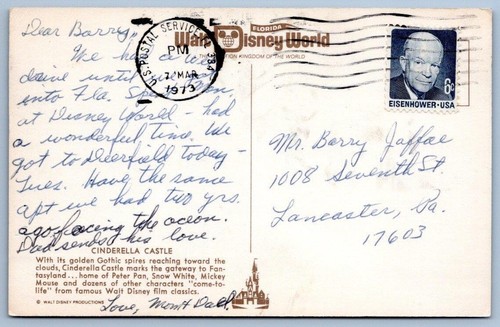 Dear Barry,
We had a wet
drive until
into Fla.
at Disney World - had
a wonderful time. We
got to Deerfield today -
Tues. Have the same
apt we had two yrs.
ago facing the ocean.
Dad sends his love.
Love, Mom & Dad.
CINDERELLA CASTLE
With its golden Gothic spires reaching toward the
clouds, Cinderella Castle marks the gateway to Fan-
tasyland... home of Peter Pan, Snow White, Mickey
Mouse and dozens of other characters "come-to-
life" from famous Walt Disney film classics.
© WALT DISNEY PRODUCTIONS
FLORIDA
Walt Disney World
THE VACATION KINGDOM OF THE WORLD
U.S. POSTAL SERVICE
PM
7 MAR
1973
6¢
EISENHOWER · USA
Mr. Barry Jaffae
1008 Seventh St.
Lancaster, Pa.
17603